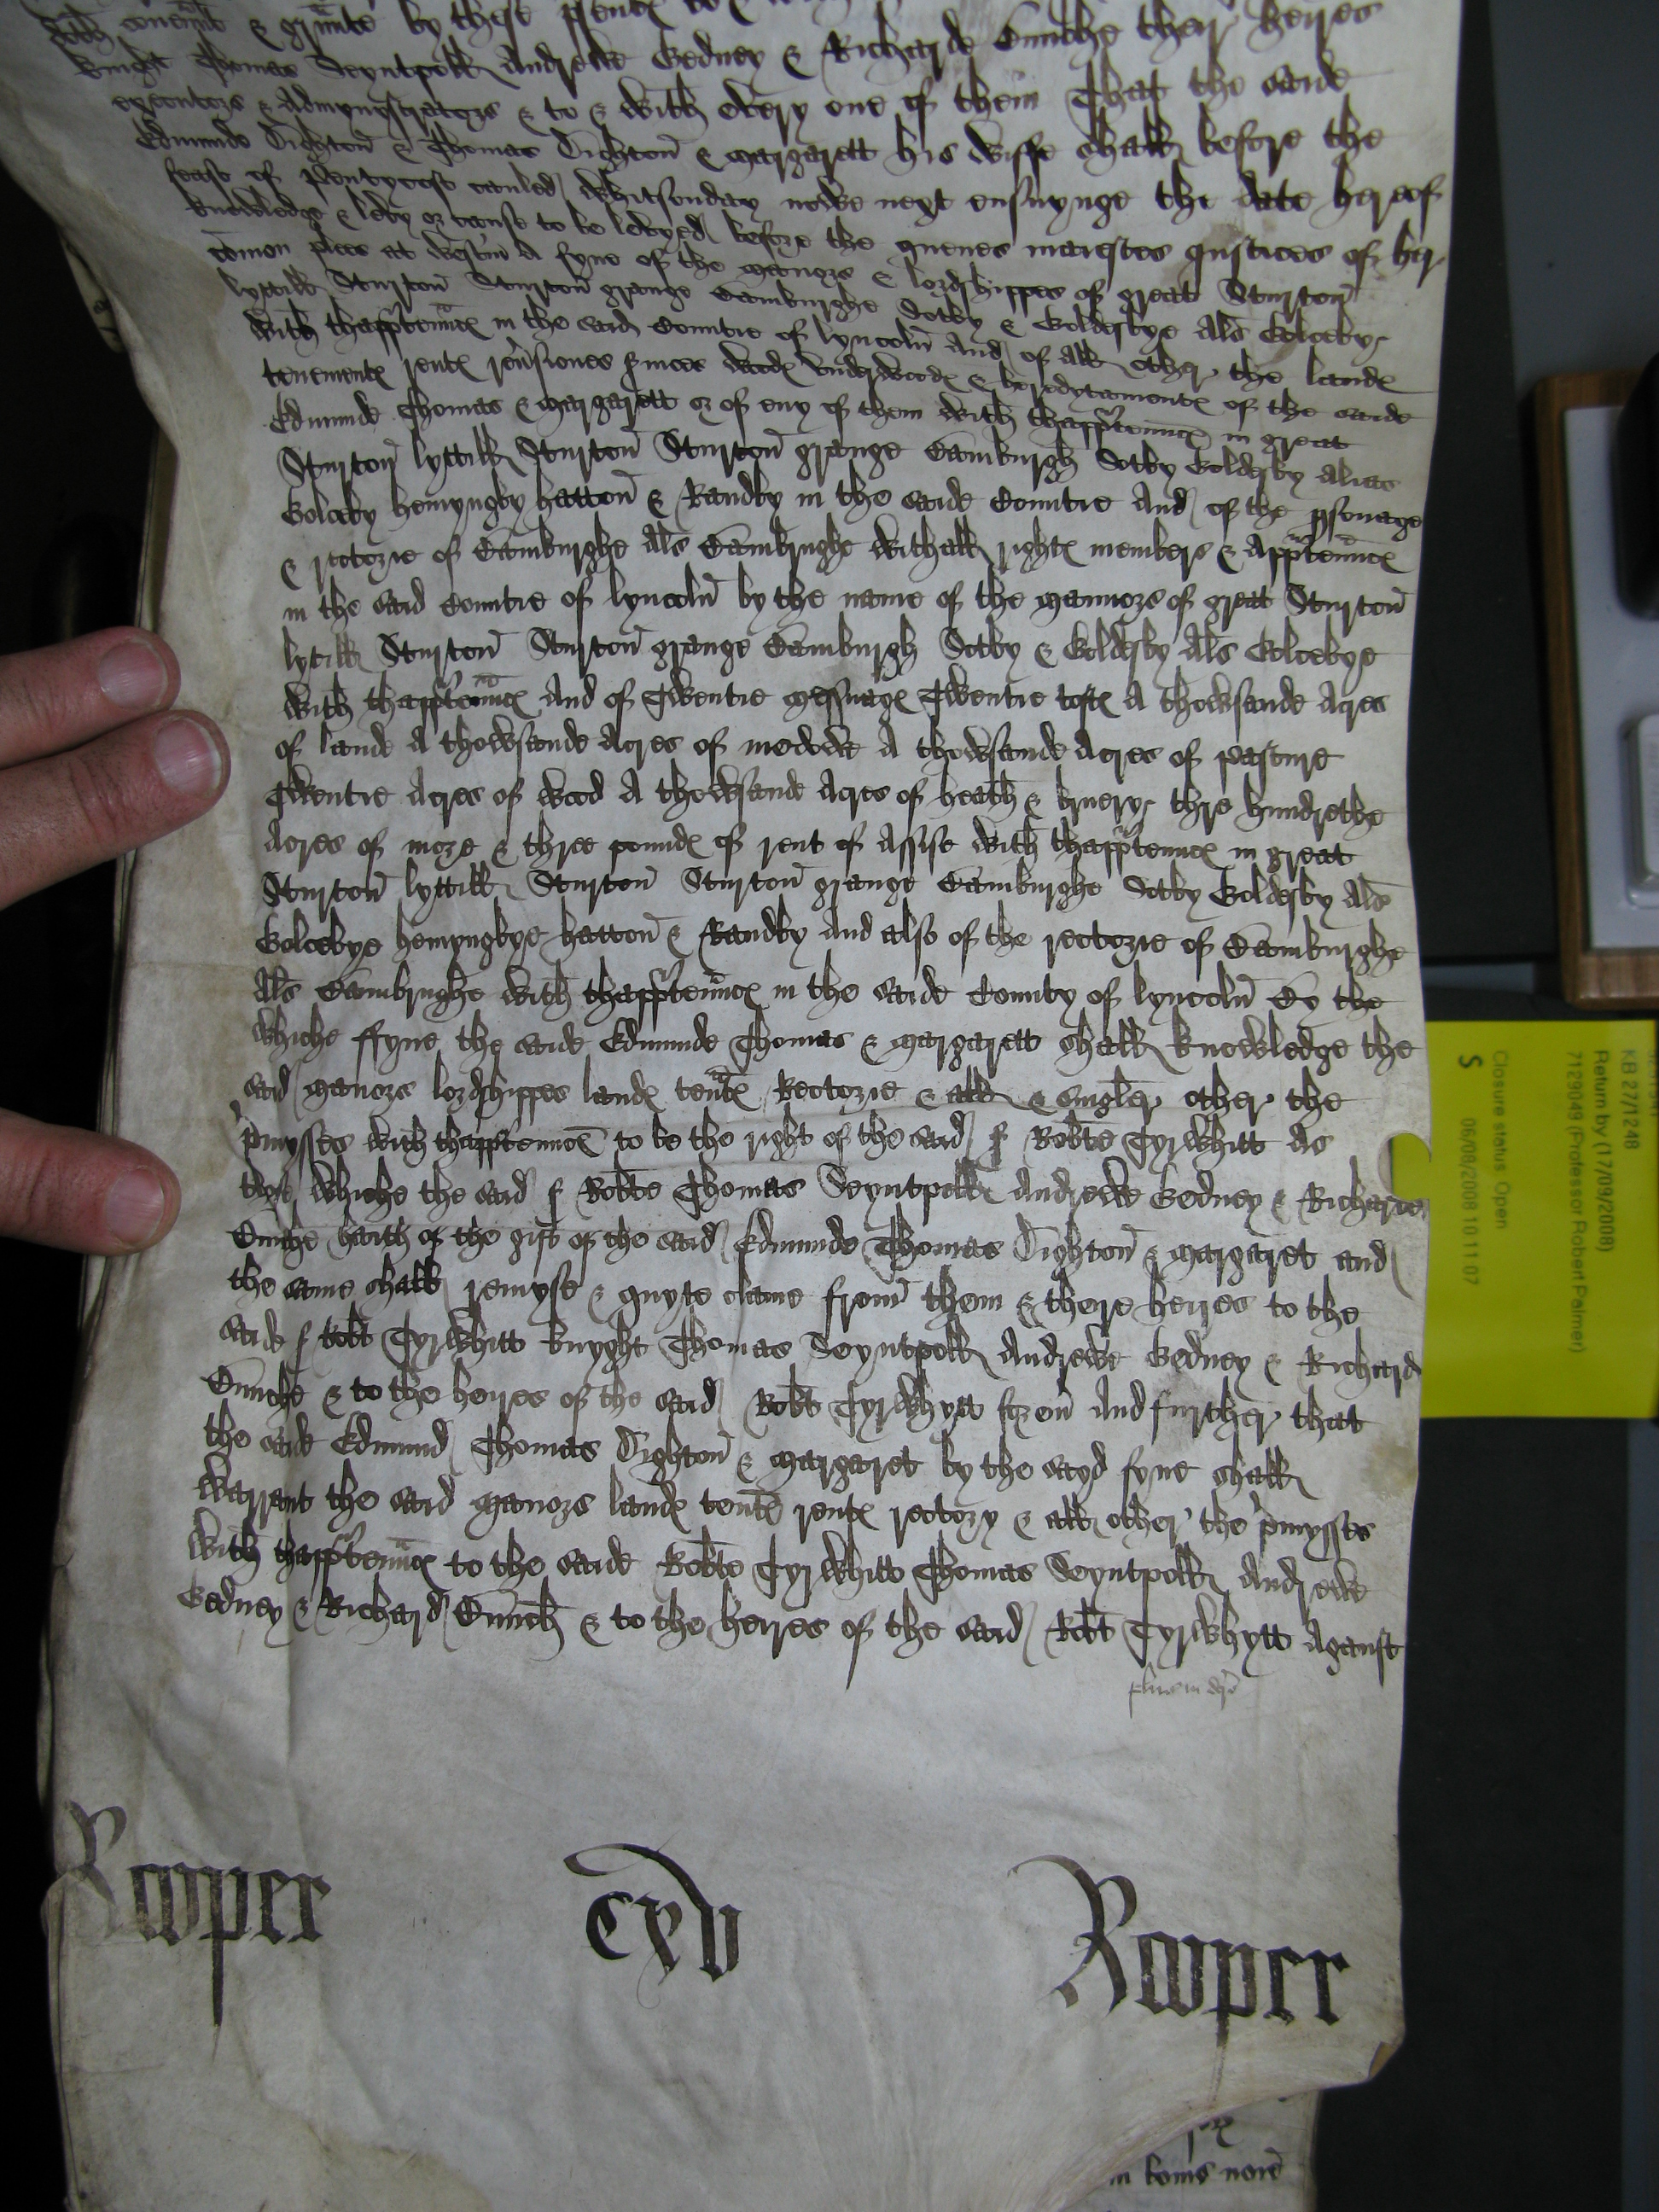 doth couennte & graunte by these presentes to &
knight Thomas Seyntpoll Andrewe Gedney & Richarde Cunche their heires
executors & admynystrators & to & with every one of them That the saide
Edmunde Dighton & Thomas Dighton & Margarett his wiffe shall before the
feast of Pentycost caulled Whitsonday nowe next ensuynge the date hereof
knowledge & levy or cause to be levyed before the quenes maiestes Justices of her
comon plees at Westm A fyne of the manors & lordshippes of great Sturton
lyttill Sturton Sturton grange Bamburghe Sotby & Goldesbye Als Golcebye
with thapptennces in the said Countie of lyncoln And of all other the landes
tenementes rentes reversiones services woodes underwoodes & heredytamentes of the saide
Edmunde Thomas & Margarett or of eny of them with thapptennces in great
Sturton lyttill Sturton Sturton grange Bamburgh Sotby Goldesby Alias
Golceby hemyngby hatton & Randby in the saide Countie And of the psonage
& rectorie of Bamburghe Als Bambrughe withall rightes members & Apptennces
in the said Countie of lyncoln by the name of the mannors of great Sturton
lytill Sturton Sturton grange Bamburgh Sotby & Goldesby Als Golcebye
with thapptennces And of Twentie messuages Twentie toftes A thowsande Acres
of lande A thowsande Acres of medowe A thowsande Acres of pasture
Twentie Acres of wood A thowsande Acres of heath & bruery thre hundrethe
Acres of more & three poundes of rent of Assise with thapptennces in great
Sturton lyttill Sturton Sturton grange Bamburghe Sotby Goldesby Als
Golcebye hemyngbye hatton & Randby And also of the rectorie of Bamburghe
Als Bambrughe with thapptennces in the saide County of lyncoln By the
whiche ffyne the saide Edmunde Thomas & Margarett shall knowledge the
said manors lordshippes landes tentes Rectorie & all & singler other the
pmysses with thapptennces to be the right of the said S Robte Tyrwhitt As
those whiche the said S Robte Thomas Seyntpoll Andrewe Gedney & Richarde
Cunche hath of the gift of the said Edmunde Thomas Dighton & Margaret and
the same shall remyse & quyte clame from them & there heires to the
saide S Robt Tyrwhitt knyght Thomas Seyntpoll Andrewe Gedney & Richard
Cunche & to the heires of the said Robt Tyrwhytt for eu And further that
the saide Edmund Thomas Dighton & Margaret by the sayd fyne shall
warrant the said manors landes tentes rentes rectory & all other the pmysses
with thapptennces to the saide Robte Tyrwhitt Thomas Seyntpoll Andrewe
Gedney & Richard Cunch & to the heires of the said Robt Tyrwhytt Against
plus in dorso
Rooper cxv Rooper
KB 27/1248
Return by (17/09/2008)
7129049 (Professor Robert Palmer)
Closure status: Open
S 06/08/2008 10:11:07